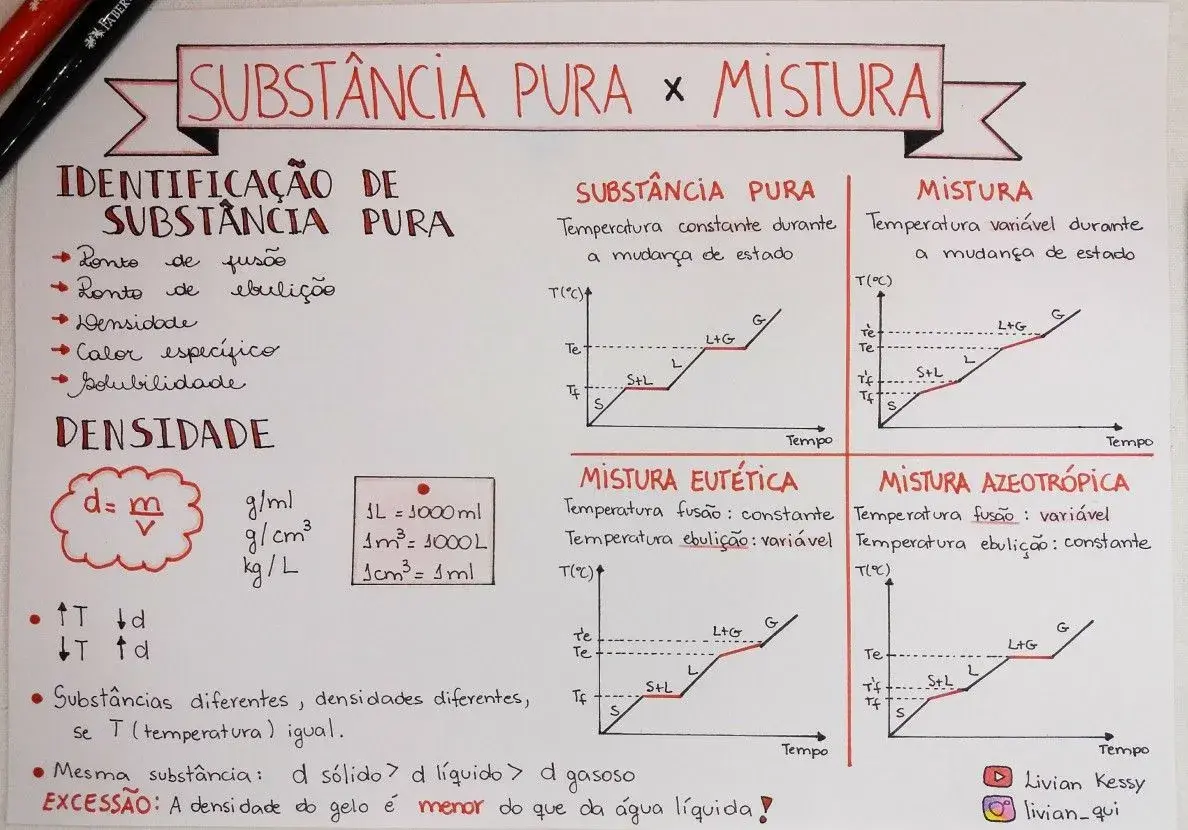 FABER
SUBSTÂNCIA PURA x MISTURA
IDENTIFICAÇÃO DE
SUBSTÂNCIA PURA
→ Ponto de fusão
→ Ponto de ebulição
→ Densidade
→ Calor específico
→ Solubilidade
DENSIDADE
d = m
V
g/ml
g/cm³
kg/L
1L = 1000ml
1m³ = 1000L
1cm³ = 1ml
• ↑T ↓d
↓T ↑d
• Substâncias diferentes, densidades diferentes,
se T (temperatura) igual.
• Mesma substância: d sólido > d líquido > d gasoso
EXCESSÃO: A densidade do gelo é menor do que da água líquida!
SUBSTÂNCIA PURA
Temperatura constante durante
a mudança de estado
T(°C)
G
L+G
Te
L
S+L
Tf
S
Tempo
MISTURA
Temperatura variável durante
a mudança de estado
T(°C)
G
L+G
T'e
Te
L
S+L
T'f
Tf
S
Tempo
MISTURA EUTÉTICA
Temperatura fusão: constante
Temperatura ebulição: variável
T(°C)
G
L+G
T'e
Te
L
S+L
Tf
S
Tempo
MISTURA AZEOTRÓPICA
Temperatura fusão: variável
Temperatura ebulição: constante
T(°C)
G
L+G
Te
L
S+L
T'f
Tf
S
Tempo
Livian Kessy
livian_qui